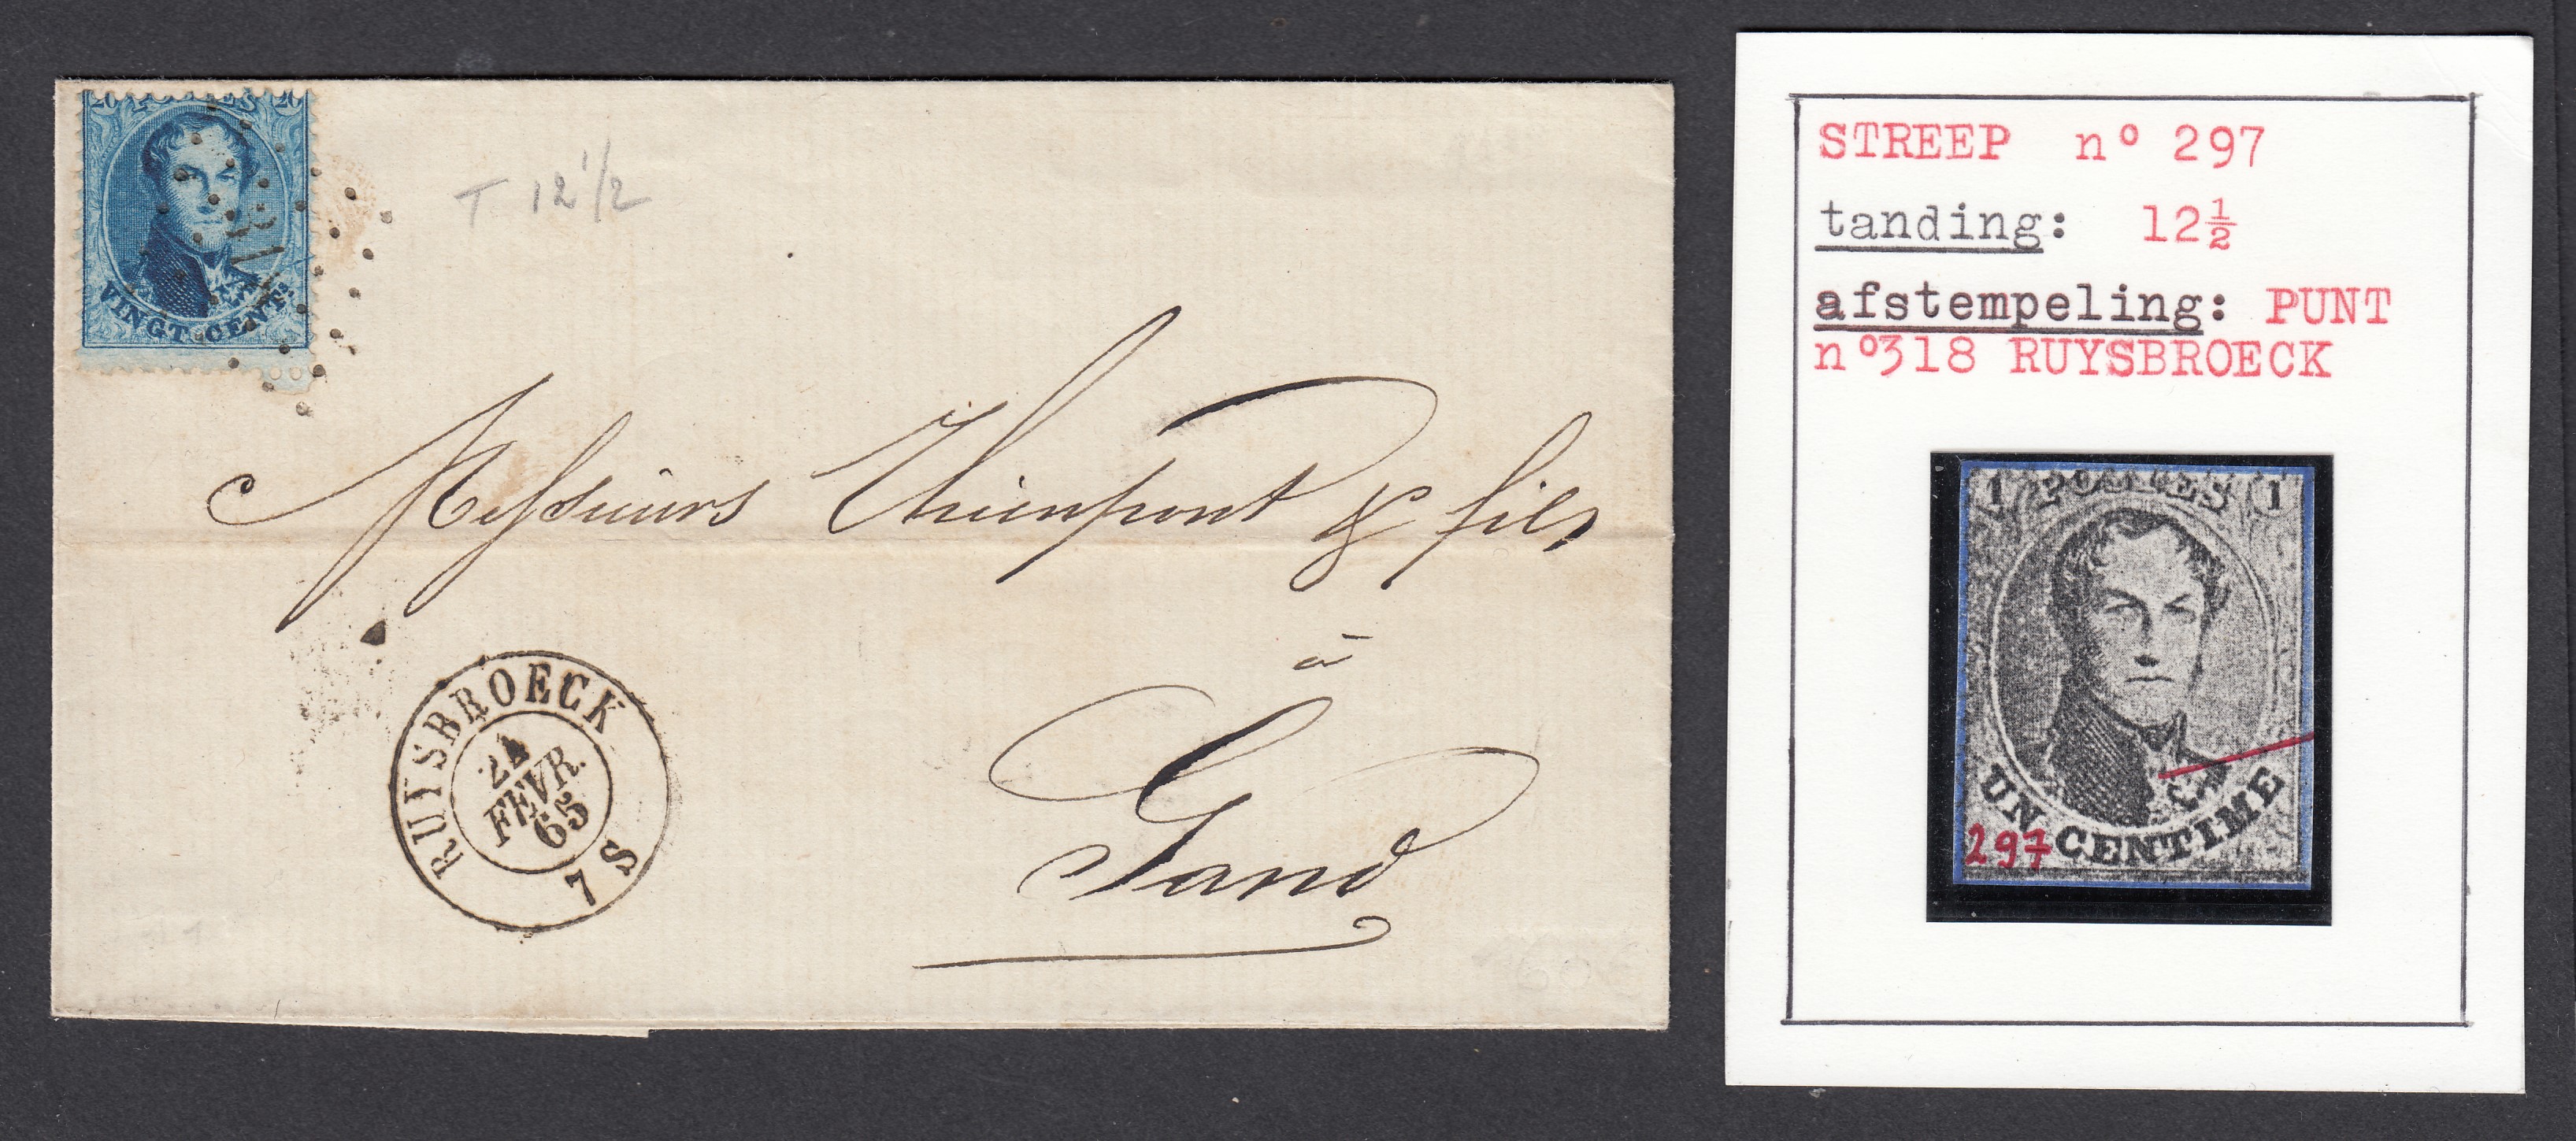 20 POSTES 20
VINGT CENTS
T 12 1/2
Messieurs Thienpont & fils
à
Gand
RUYSBROECK
24
FEVR.
65
7 S
STREEP nº 297
tanding: 12½
afstempeling: PUNT
nº318 RUYSBROECK
1 POSTES 1
UN CENTIME
297